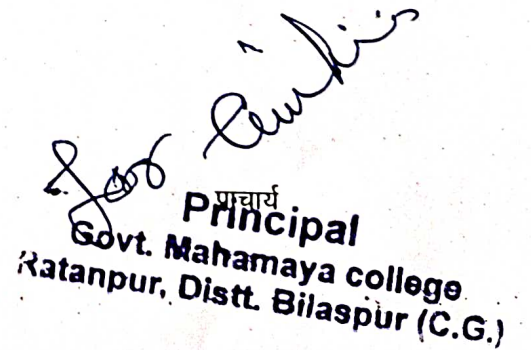 प्राचार्य
Principal
Govt. Mahamaya college
Ratanpur, Distt. Bilaspur (C.G.)